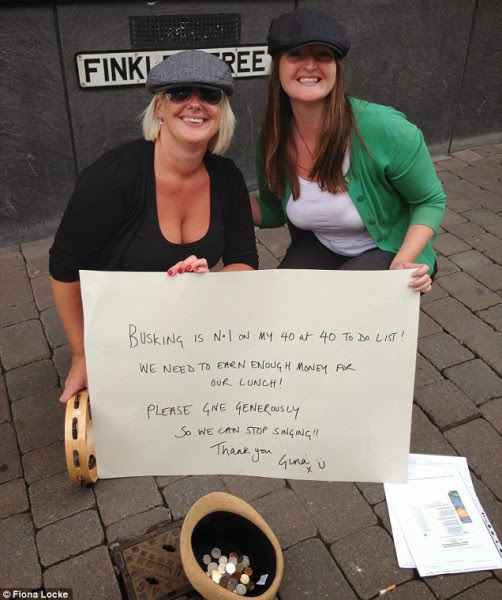 FINKL TREE
BUSKING IS NO.1 ON MY 40 at 40 TO DO LIST!
WE NEED TO EARN ENOUGH MONEY FOR
OUR LUNCH!
PLEASE GIVE GENEROUSLY
SO WE CAN STOP SINGING!!
Thank you
Gina x
© Fiona Locke